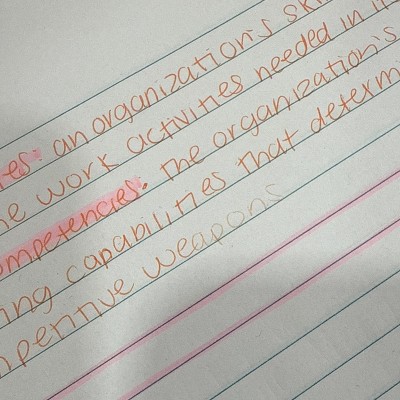 es: an organization's sk
he work activities needed in i
ompetencies. The organization's
ing capabilities that determi
petitive weapons